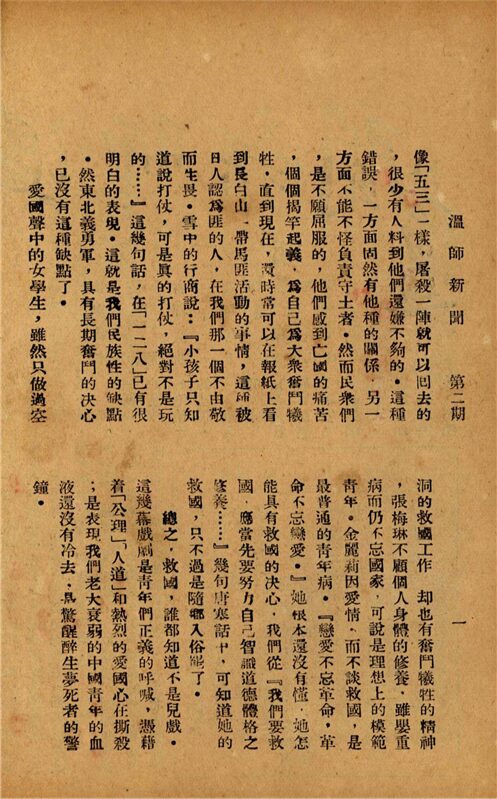 溫師新聞　第二期　一
像「五三」一樣，屠殺一陣就可以回去的
，很少有人料到他們還嫌不夠的。這種
錯誤，一方面固然有他種的關係，另一
方面不能不怪負責守土者。然而民衆們
，是不願屈服的，他們感到亡國的痛苦
，個個揭竿起義，爲自己爲大衆奮鬥犧
牲，直到現在，還時常可以在報紙上看
到長白山一帶馬匪活動的事情，這種被
日人認爲匪的人，在我們那一個不由敬
而生畏。雪中的行商說：『小孩子只知
道說打仗，可是眞的打仗，絕對不是玩
的……』這幾句話，在「一二八」已有很
明白的表現。這就是我們民族性的缺點
。然東北義勇軍，具有長期奮鬥的決心
，已沒有這種缺點了。
愛國聲中的女學生，雖然只做過空
洞的救國工作，却也有奮鬥犧牲的精神
，張梅琳不顧個人身體的修養，雖嬰重
病而仍不忘國家，可說是理想上的模範
青年。金麗莉因愛情，而不談救國，是
最普通的青年病。『戀愛不忘革命。革
命不忘戀愛。』她根本還沒有懂，她怎
能具有救國的決心，我們從『我們要救
國，應當先要努力自己智識道德體格之
修養……』幾句唐塞話中，可知道她的
救國，只不過是隨鄉入俗罷了。
總之，救國，誰都知道不是兒戲。
這幾幕戲劇是青年們正義的呼喊，憑藉
着「公理」，人道」和熱烈的愛國心在撕殺
；是表現我們老大衰弱的中國青年的血
液還沒有冷去；是驚醒醉生夢死者的警
鐘。